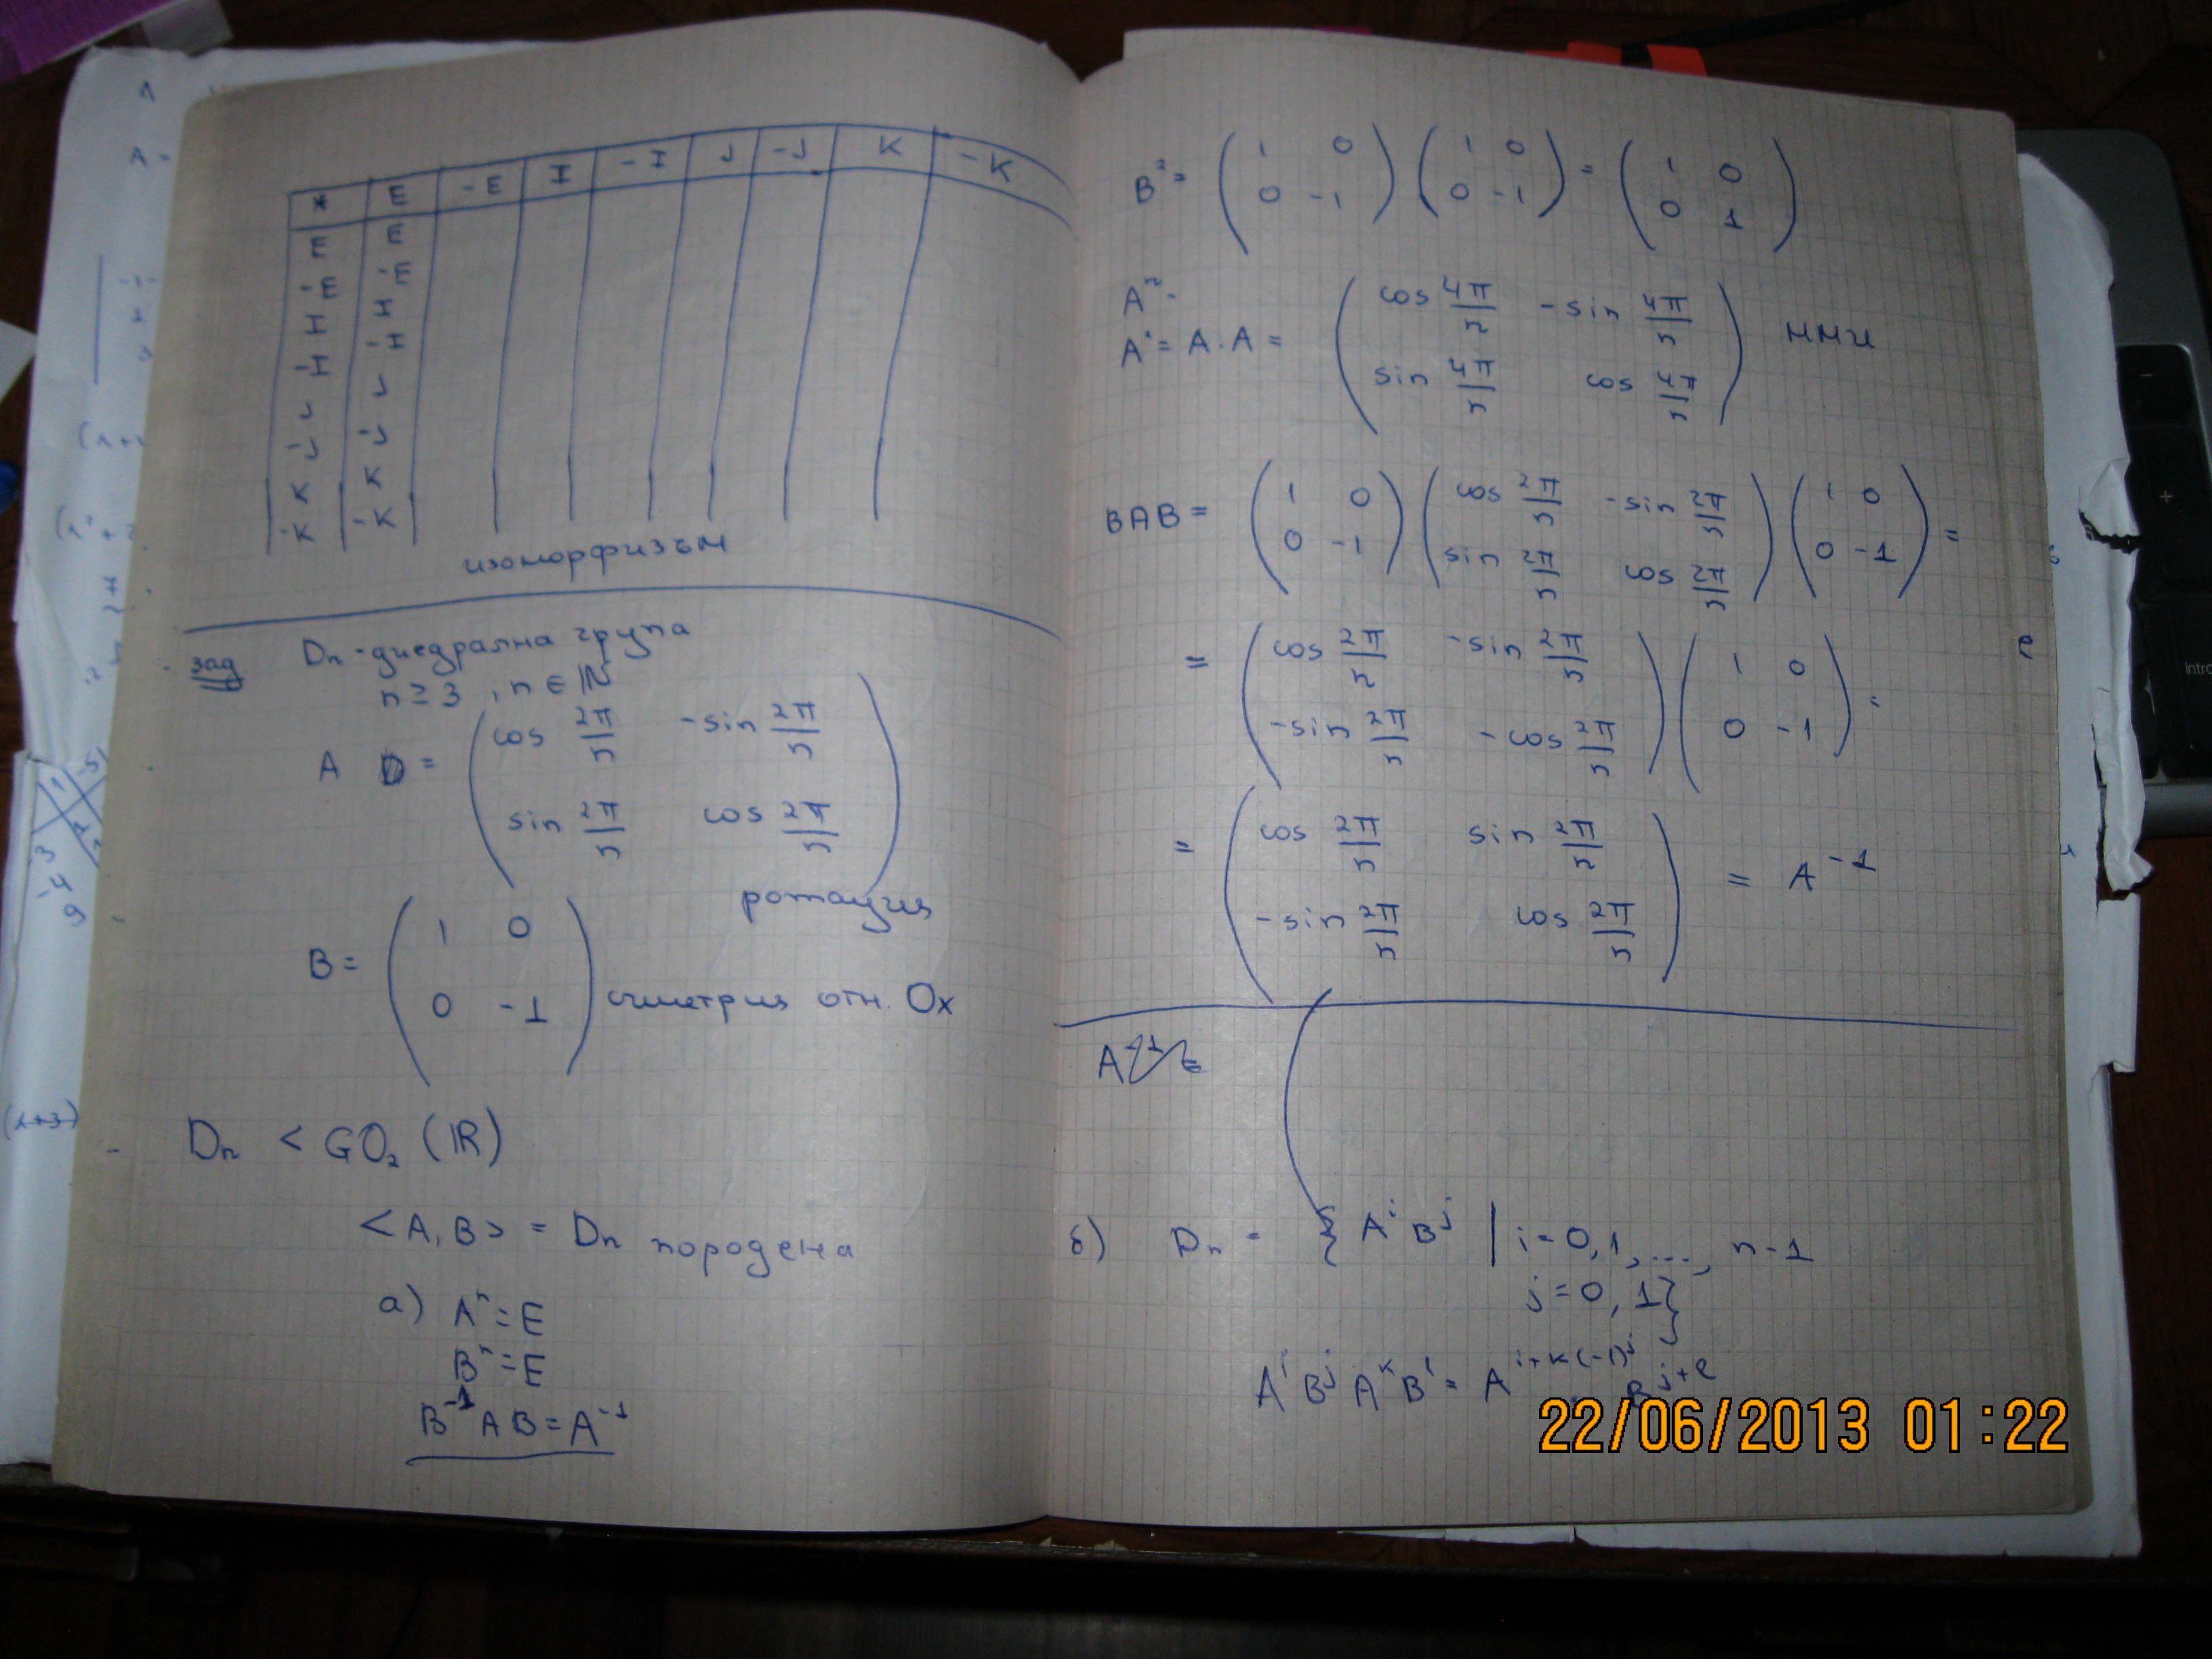 * | E | -E | I | -I | J | -J | K | -K
E | E
-E | -E
I | I
-I | -I
J | J
-J | -J
K | K
-K | -K
изоморфизъм
зад Dn - диедрална група
n ≥ 3, n ∈ ℕ
A = ( cos 2π/n   -sin 2π/n
sin 2π/n   cos 2π/n )
ротация
B = ( 1   0
0   -1 ) симетрия отн. Ox
Dn < GO₂ (ℝ)
<A, B> = Dn породена
а) Aⁿ = E
Bⁿ = E
B⁻¹AB = A⁻¹
B² = ( 1   0
0   -1 ) ( 1   0
0   -1 ) = ( 1   0
0   1 )
A² = A.A = ( cos 4π/n   -sin 4π/n
sin 4π/n   cos 4π/n ) ММИ
BAB = ( 1   0
0   -1 ) ( cos 2π/n   -sin 2π/n
sin 2π/n   cos 2π/n ) ( 1   0
0   -1 ) =
= ( cos 2π/n   -sin 2π/n
-sin 2π/n   -cos 2π/n ) ( 1   0
0   -1 ) =
= ( cos 2π/n   sin 2π/n
-sin 2π/n   cos 2π/n ) = A⁻¹
б) Dn = { Aⁱ Bʲ | i = 0, 1, ..., n-1
j = 0, 1 }
Aⁱ Bʲ Aᵏ Bˡ = A^(i+k(-1)^j) . B^(j+l)
22/06/2013 01:22